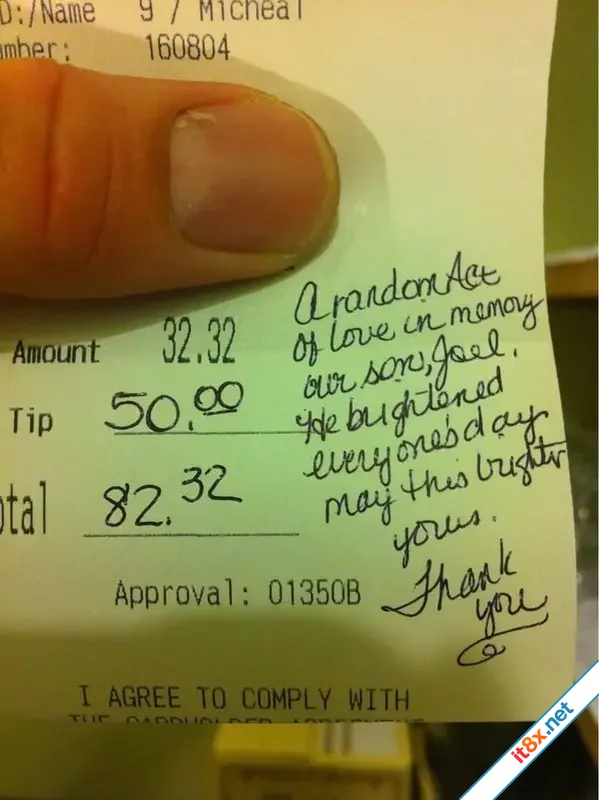 D:/Name 9 / Micheal
umber: 160804
Amount 32.32
Tip 50.00
otal 82.32
A random Act
of love in memory
our son, Joel.
He brightened
everyone's day
may this brighten
yours.
Thank
you
Approval: 01350B
I AGREE TO COMPLY WITH
THE CARDHOLDER AGREEMENT
it8x.net